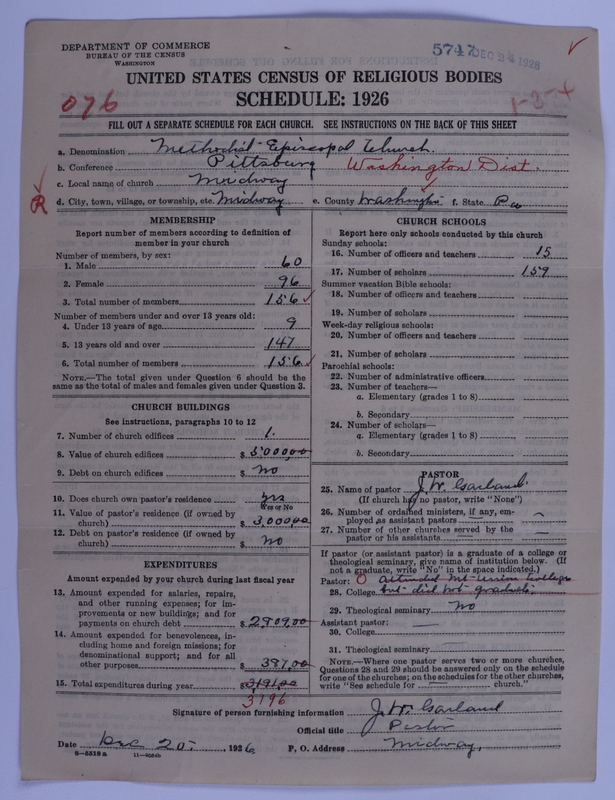 DEPARTMENT OF COMMERCE
BUREAU OF THE CENSUS
WASHINGTON
5747 DEC 24 1926
UNITED STATES CENSUS OF RELIGIOUS BODIES
SCHEDULE: 1926
076
1-3-4
FILL OUT A SEPARATE SCHEDULE FOR EACH CHURCH. SEE INSTRUCTIONS ON THE BACK OF THIS SHEET
a. Denomination Methodist Episcopal Church.
b. Conference Pittsburg Washington Dist.
c. Local name of church Midway
R d. City, town, village, or township, etc. Midway e. County Washington f. State Pa
MEMBERSHIP
Report number of members according to definition of
member in your church
Number of members, by sex:
1. Male 60
2. Female 96
3. Total number of members 156
Number of members under and over 13 years old:
4. Under 13 years of age 9
5. 13 years old and over 147
6. Total number of members 156
NOTE.—The total given under Question 6 should be the
same as the total of males and females given under Question 3.
CHURCH BUILDINGS
See instructions, paragraphs 10 to 12
7. Number of church edifices 1.
8. Value of church edifices $ 5000.00
9. Debt on church edifices $ No
10. Does church own pastor's residence yes
Yes or No
11. Value of pastor's residence (if owned by
church) $ 3,000.00
12. Debt on pastor's residence (if owned by
church) $ No
EXPENDITURES
Amount expended by your church during last fiscal year
13. Amount expended for salaries, repairs,
and other running expenses; for im-
provements or new buildings; and for
payments on church debt $ 2809.00
14. Amount expended for benevolences, in-
cluding home and foreign missions; for
denominational support; and for all
other purposes $ 387.00
15. Total expenditures during year $ 3191.00
3196
CHURCH SCHOOLS
Report here only schools conducted by this church
Sunday schools:
16. Number of officers and teachers 15
17. Number of scholars 159
Summer vacation Bible schools:
18. Number of officers and teachers
19. Number of scholars
Week-day religious schools:
20. Number of officers and teachers
21. Number of scholars
Parochial schools:
22. Number of administrative officers
23. Number of teachers—
a. Elementary (grades 1 to 8)
b. Secondary
24. Number of scholars—
a. Elementary (grades 1 to 8)
b. Secondary
PASTOR
25. Name of pastor J. W. Garland.
(If church has no pastor, write "None")
26. Number of ordained ministers, if any, em-
ployed as assistant pastors
27. Number of other churches served by the
pastor or his assistants
If pastor (or assistant pastor) is a graduate of a college or
theological seminary, give name of institution below. (If
not a graduate, write "No" in the space indicated.)
Pastor: 0 attended Mt. Union College
28. College but did not graduate.
29. Theological seminary No
Assistant pastor:
30. College
31. Theological seminary
NOTE.—Where one pastor serves two or more churches,
Questions 28 and 29 should be answered only on the schedule
for one of the churches; on the schedules for the other churches,
write "See schedule for church."
Signature of person furnishing information J. W. Garland
Official title Pastor
Date Dec 20, 1926 P. O. Address Midway,
8—5518 a 11—9084b